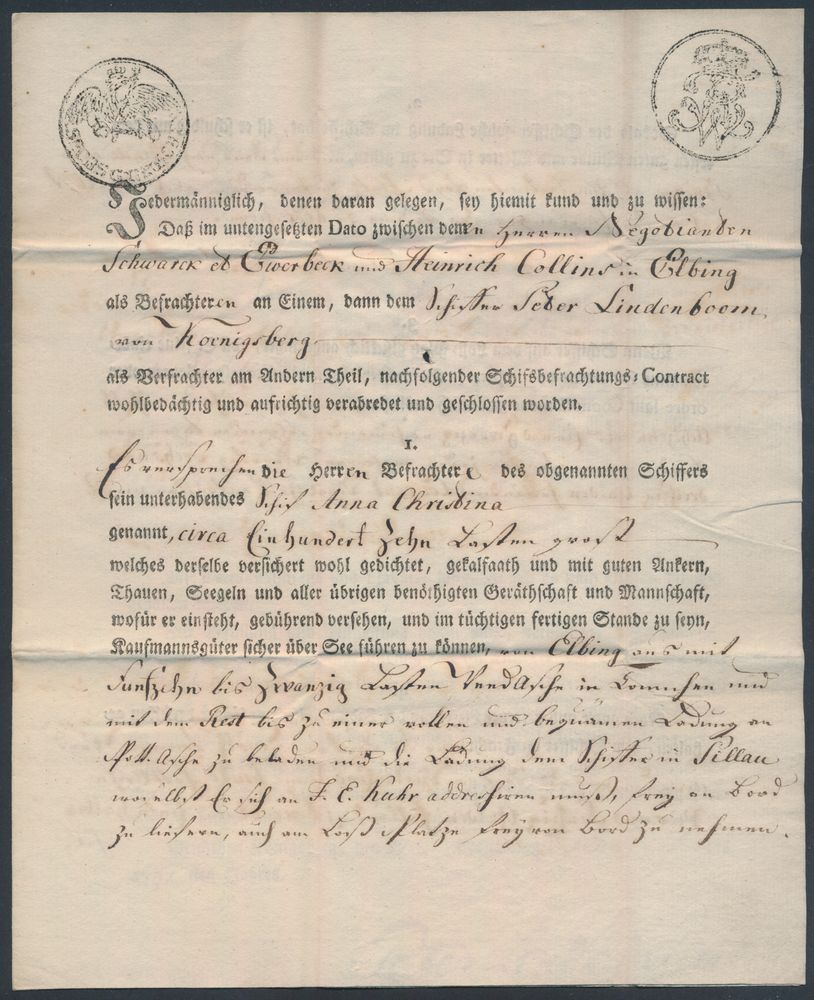 SECHS G. GROSCH
Jedermänniglich, denen daran gelegen, sey hiemit kund und zu wissen:
Daß im untengesetzten Dato zwischen denen Herren Negotianten
Schwarck et Ewerbeck und Heinrich Collins in Elbing
als Befrachteren an Einem, dann dem Schiffer Peter Lindenboom
von Koenigsberg
als Verfrachter am Andern Theil, nachfolgender Schifsbefrachtungs-Contract
wohlbedächtig und aufrichtig verabredet und geschlossen worden.
1.
Es versprechen die Herren Befrachtere des obgenannten Schiffers
sein unterhabendes Schif Anna Christina
genannt, circa Einhundert Zehn Lasten groß
welches derselbe versichert wohl gedichtet, gekalfaath und mit guten Ankern,
Thauen, Seegeln und aller übrigen benöthigten Geräthschaft und Mannschaft,
wofür er einsteht, gebührend versehen, und im tüchtigen fertigen Stande zu seyn,
Kaufmannsgüter sicher über See führen zu können, von Elbing aus mit
Funfzehn bis Zwanzig Lasten WeedAsche in Tonnchen und
mit dem Rest bis zu einer vollen und bequämen Ladung an
Pott Asche zu beladen und die Ladung dem Schiffer in Pillau
woselbst Er sich an F. E. Kuhr addreshiren muß, frey an Bord
zu liefern, auch am Loß Platze frey von Bord zu nehmen.